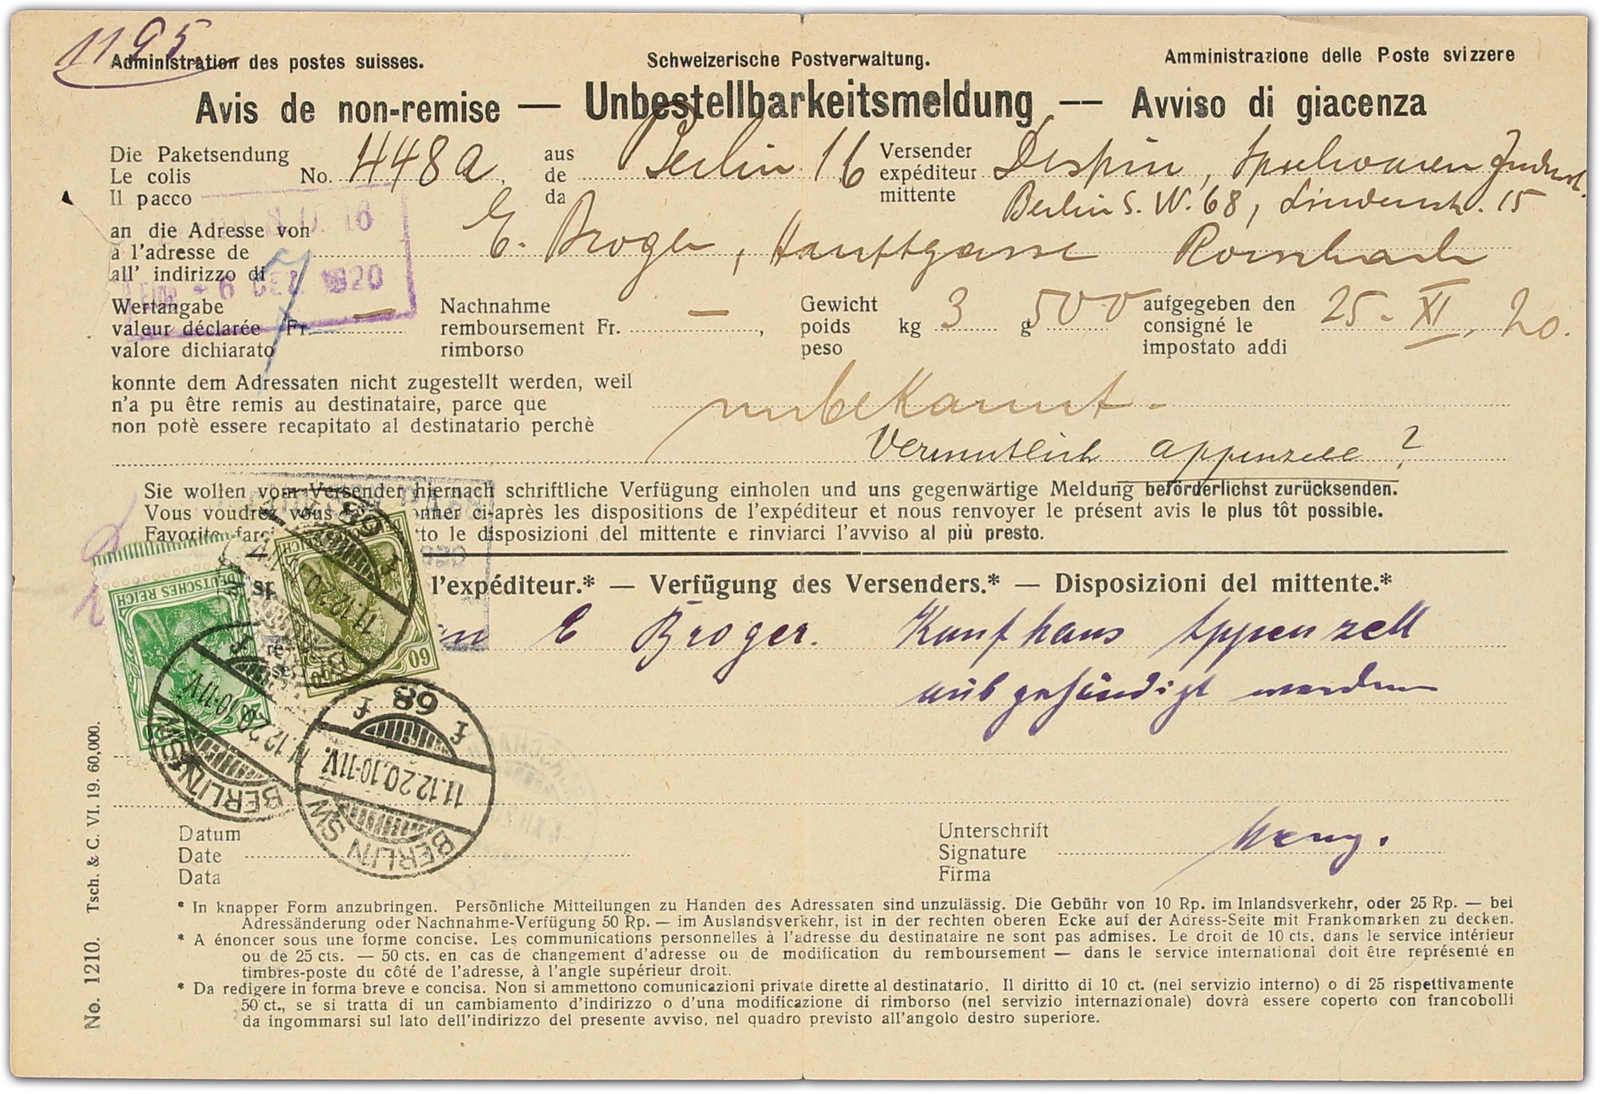 1195.
Administration des postes suisses. Schweizerische Postverwaltung. Amministrazione delle Poste svizzere
Avis de non-remise — Unbestellbarkeitsmeldung — Avviso di giacenza
Die Paketsendung
Le colis
Il pacco
No. 448a
aus
de
da
Berlin 16
Versender
expéditeur
mittente
Berlin S. W. 68, Lindenstr. 15
an die Adresse von
à l'adresse de
all' indirizzo di
E. Broger, Hauptgasse
S.O. 16
- 6 DEZ. 1920
Wertangabe
valeur déclarée Fr. —
valore dichiarato
Nachnahme
remboursement Fr. —,
rimborso
Gewicht
poids
peso
kg 3 g 500
aufgegeben den
consigné le
impostato addi
25. XI. 20.
konnte dem Adressaten nicht zugestellt werden, weil
n'a pu être remis au destinataire, parce que
non potè essere recapitato al destinatario perchè
unbekannt -
Vermutlich Appenzell?
Sie wollen vom Versender hiernach schriftliche Verfügung einholen und uns gegenwärtige Meldung beförderlichst zurücksenden.
Vous voudrez vous onner ci-après les dispositions de l'expéditeur et nous renvoyer le présent avis le plus tôt possible.
Favorite far tto le disposizioni del mittente e rinviarci l'avviso al più presto.
l'expéditeur.* — Verfügung des Versenders.* — Disposizioni del mittente.*
an E Broger. Kaufhaus Appenzell
ausgehändigt werden
DEUTSCHES REICH
60
BERLIN SW
11.12.20.10-11V.
f 68 f
Datum
Date
Data
Unterschrift
Signature
Firma
* In knapper Form anzubringen. Persönliche Mitteilungen zu Handen des Adressaten sind unzulässig. Die Gebühr von 10 Rp. im Inlandsverkehr, oder 25 Rp. — bei
Adressänderung oder Nachnahme-Verfügung 50 Rp. — im Auslandsverkehr, ist in der rechten oberen Ecke auf der Adress-Seite mit Frankomarken zu decken.
* A énoncer sous une forme concise. Les communications personnelles à l'adresse du destinataire ne sont pas admises. Le droit de 10 cts. dans le service intérieur
ou de 25 cts. — 50 cts. en cas de changement d'adresse ou de modification du remboursement — dans le service international doit être représenté en
timbres-poste du côté de l'adresse, à l'angle supérieur droit.
* Da redigere in forma breve e concisa. Non si ammettono comunicazioni private dirette al destinatario. Il diritto di 10 ct. (nel servizio interno) o di 25 rispettivamente
50 ct., se si tratta di un cambiamento d'indirizzo o d'una modificazione di rimborso (nel servizio internazionale) dovrà essere coperto con francobolli
da ingommarsi sul lato dell'indirizzo del presente avviso, nel quadro previsto all'angolo destro superiore.
No. 1210. Tsch. & C. VI. 19. 60,000.